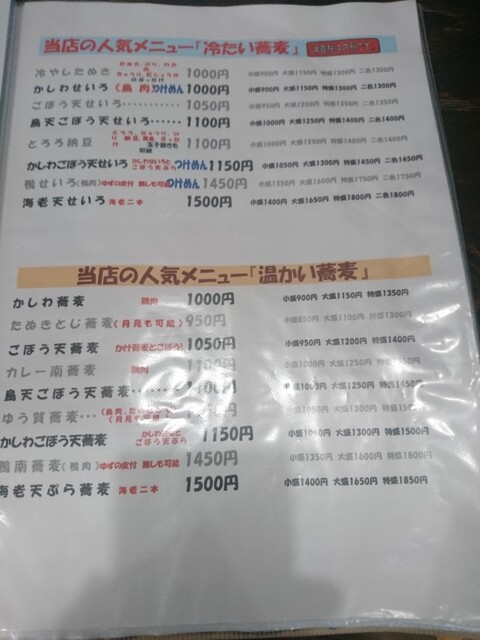 当店の人気メニュー「冷たい蕎麦」
冷やしたぬき 1000円 小盛900円 大盛1150円 特盛1300円 二色1300円
かしわせいろ（鳥肉）つけめん 1000円 小盛900円 大盛1150円 特盛1300円 二色1300円
ごぼう天せいろ………… 1050円 小盛950円 大盛1200円 特盛1350円 二色1350円
鳥天ごぼう天せいろ…… 1100円 小盛1000円 大盛1250円 特盛1400円 二色1400円
とろろ納豆 1100円 小盛1000円 大盛1250円 特盛1400円 二色1400円
かしわごぼう天せいろ つけめん 1150円 小盛1050円 大盛1300円 特盛1450円 二色1450円
鴨せいろ（鴨肉）ゆずの皮付 無しも可能 つけめん 1450円 小盛1350円 大盛1600円 特盛1750円 二色1750円
海老天せいろ 海老二本 1500円 小盛1400円 大盛1650円 特盛1800円 二色1800円
当店の人気メニュー「温かい蕎麦」
かしわ蕎麦 鶏肉 1000円 小盛900円 大盛1150円 特盛1350円
たぬきとじ蕎麦（月見も可能）950円 小盛850円 大盛1100円 特盛1300円
ごぼう天蕎麦 かけ蕎麦とごぼう） 1050円 小盛950円 大盛1200円 特盛1400円
カレー南蕎麦 鶏肉 小盛1000円 大盛1250円
鳥天ごぼう天蕎麦……… 大盛1250円 特盛1450円
ゆう賀蕎麦…
かしわごぼう天蕎麦 かしわ蕎麦と ごぼう天ぷら 1150円 小盛1050円 大盛1300円 特盛1500円
鴨南蕎麦（鴨肉）ゆずの皮付 無しも可能 1450円 小盛1350円 大盛1600円 特盛1800円
海老天ぷら蕎麦 海老二本 1500円 小盛1400円 大盛1650円 特盛1850円